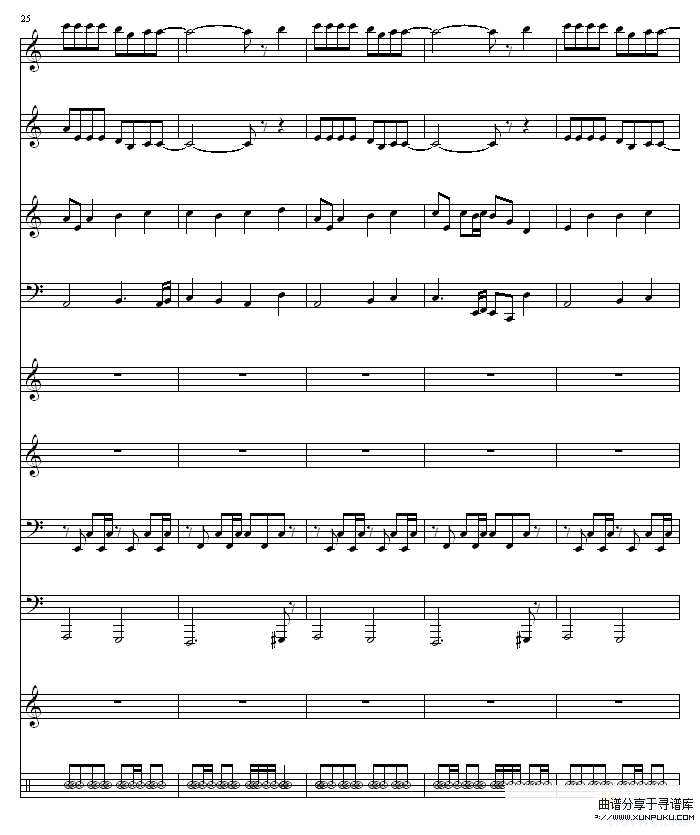 25
曲谱分享于寻谱库
P://WWW.XUNPUKU.COM